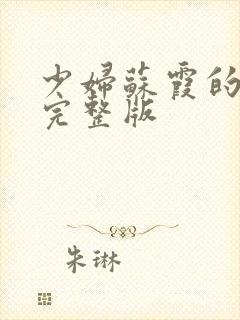 少婦蘇霞的
完整版
朱琳